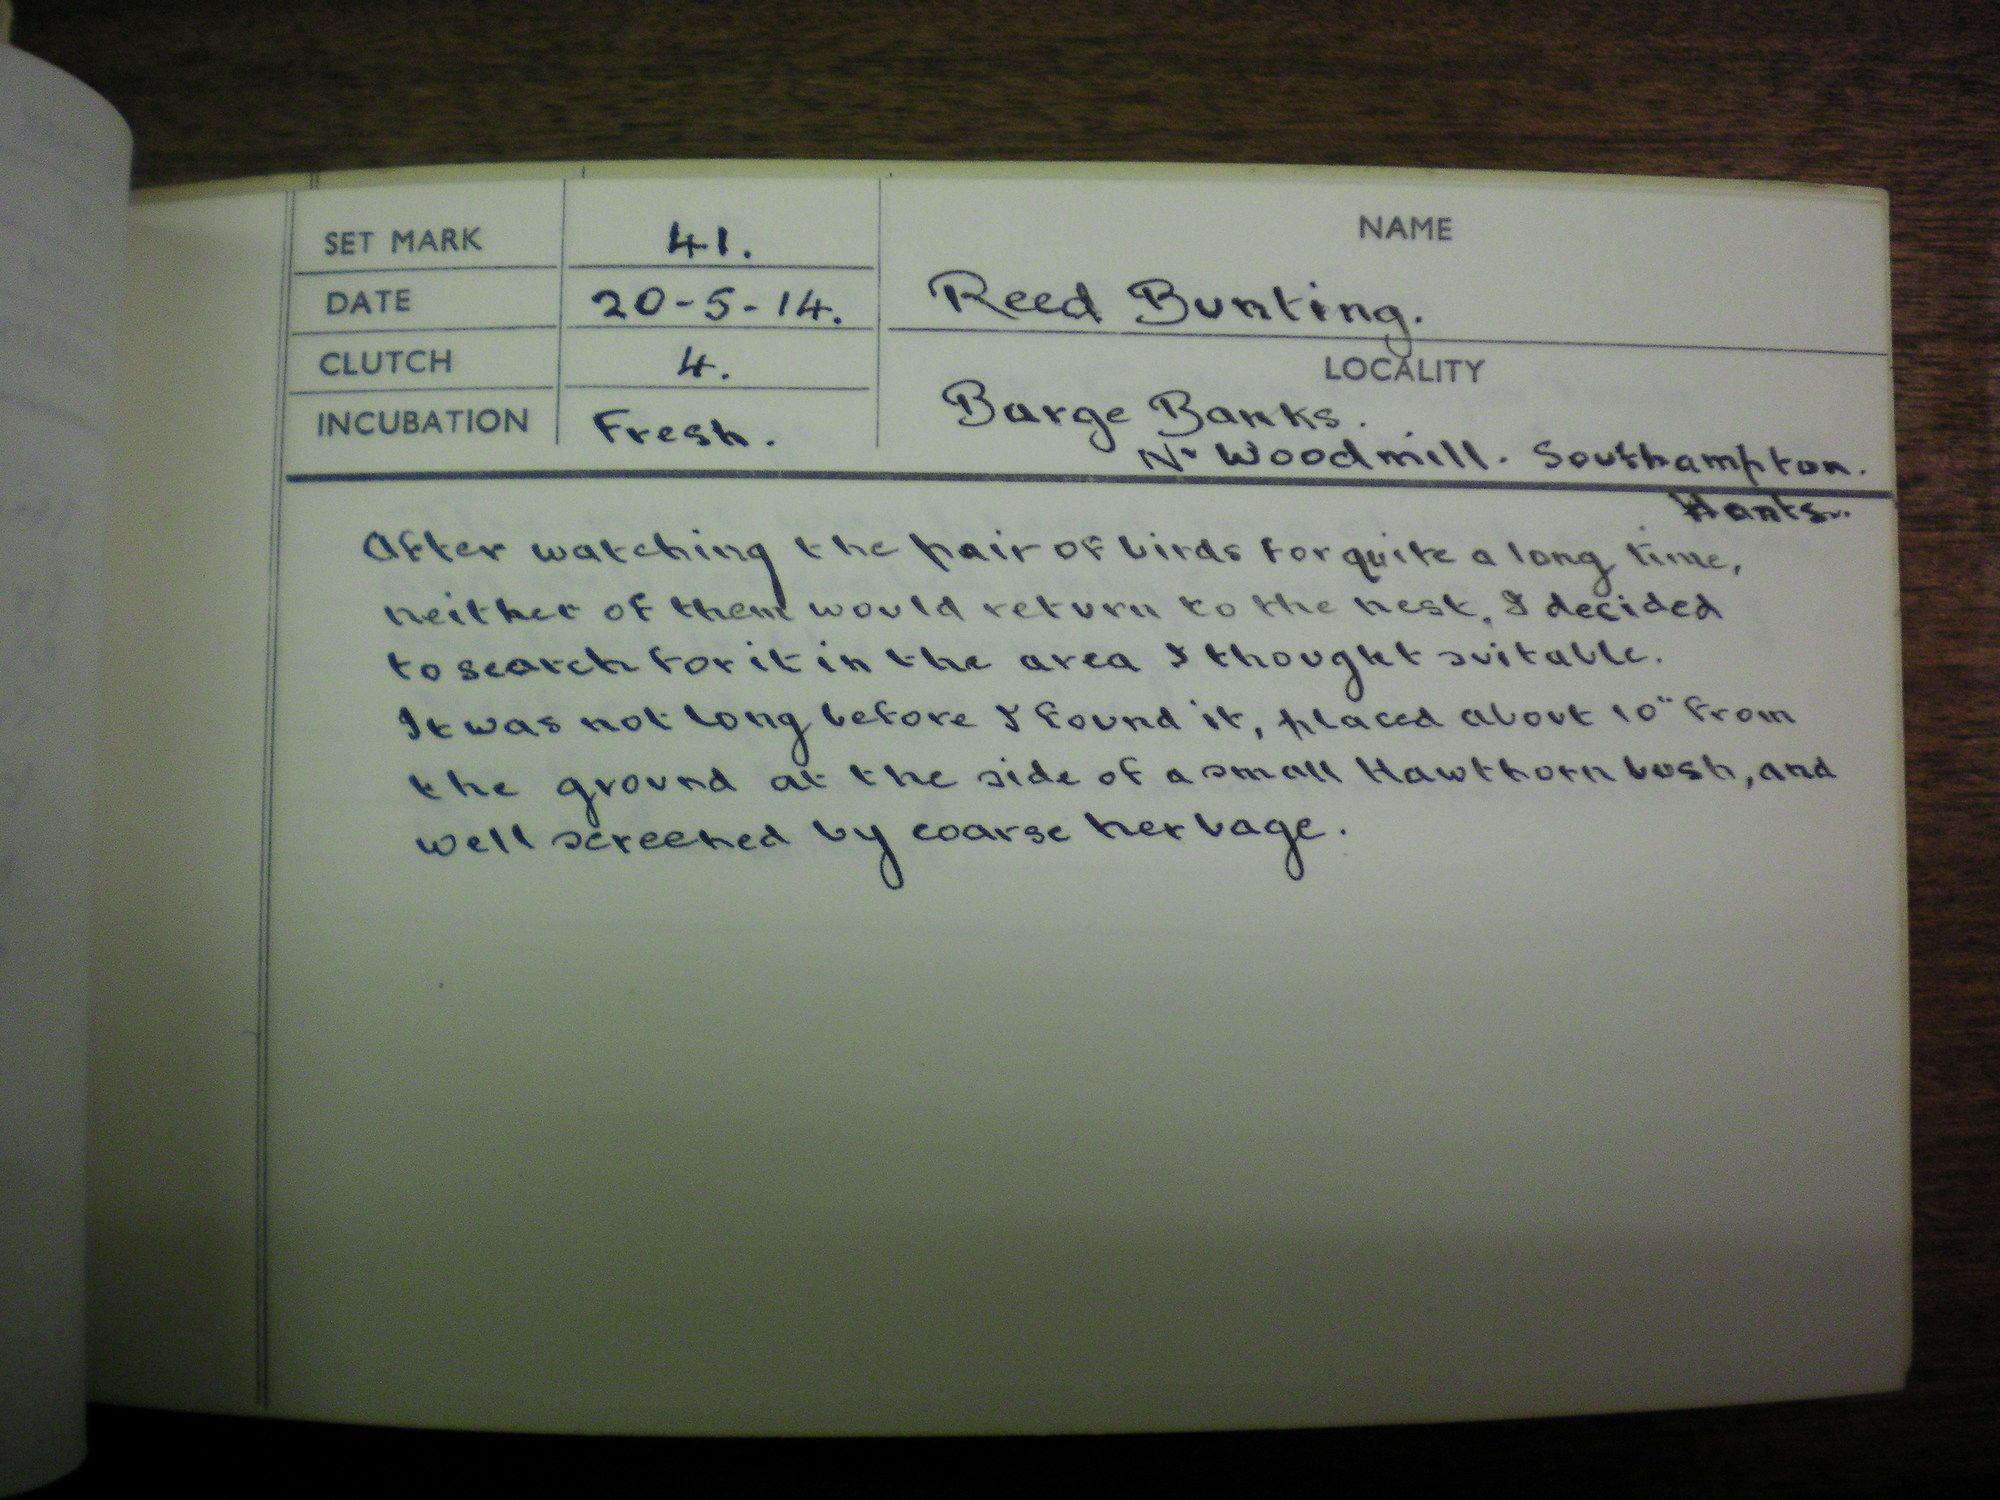 SET MARK 41.
DATE 20-5-14.
CLUTCH 4.
INCUBATION Fresh.
NAME
Reed Bunting.
LOCALITY
Barge Banks.
Nr Woodmill. Southampton.
Hants.
After watching the pair of birds for quite a long time,
neither of them would return to the nest. I decided
to search for it in the area I thought suitable.
It was not long before I found it, placed about 10" from
the ground at the side of a small Hawthorn bush, and
well screened by coarse herbage.